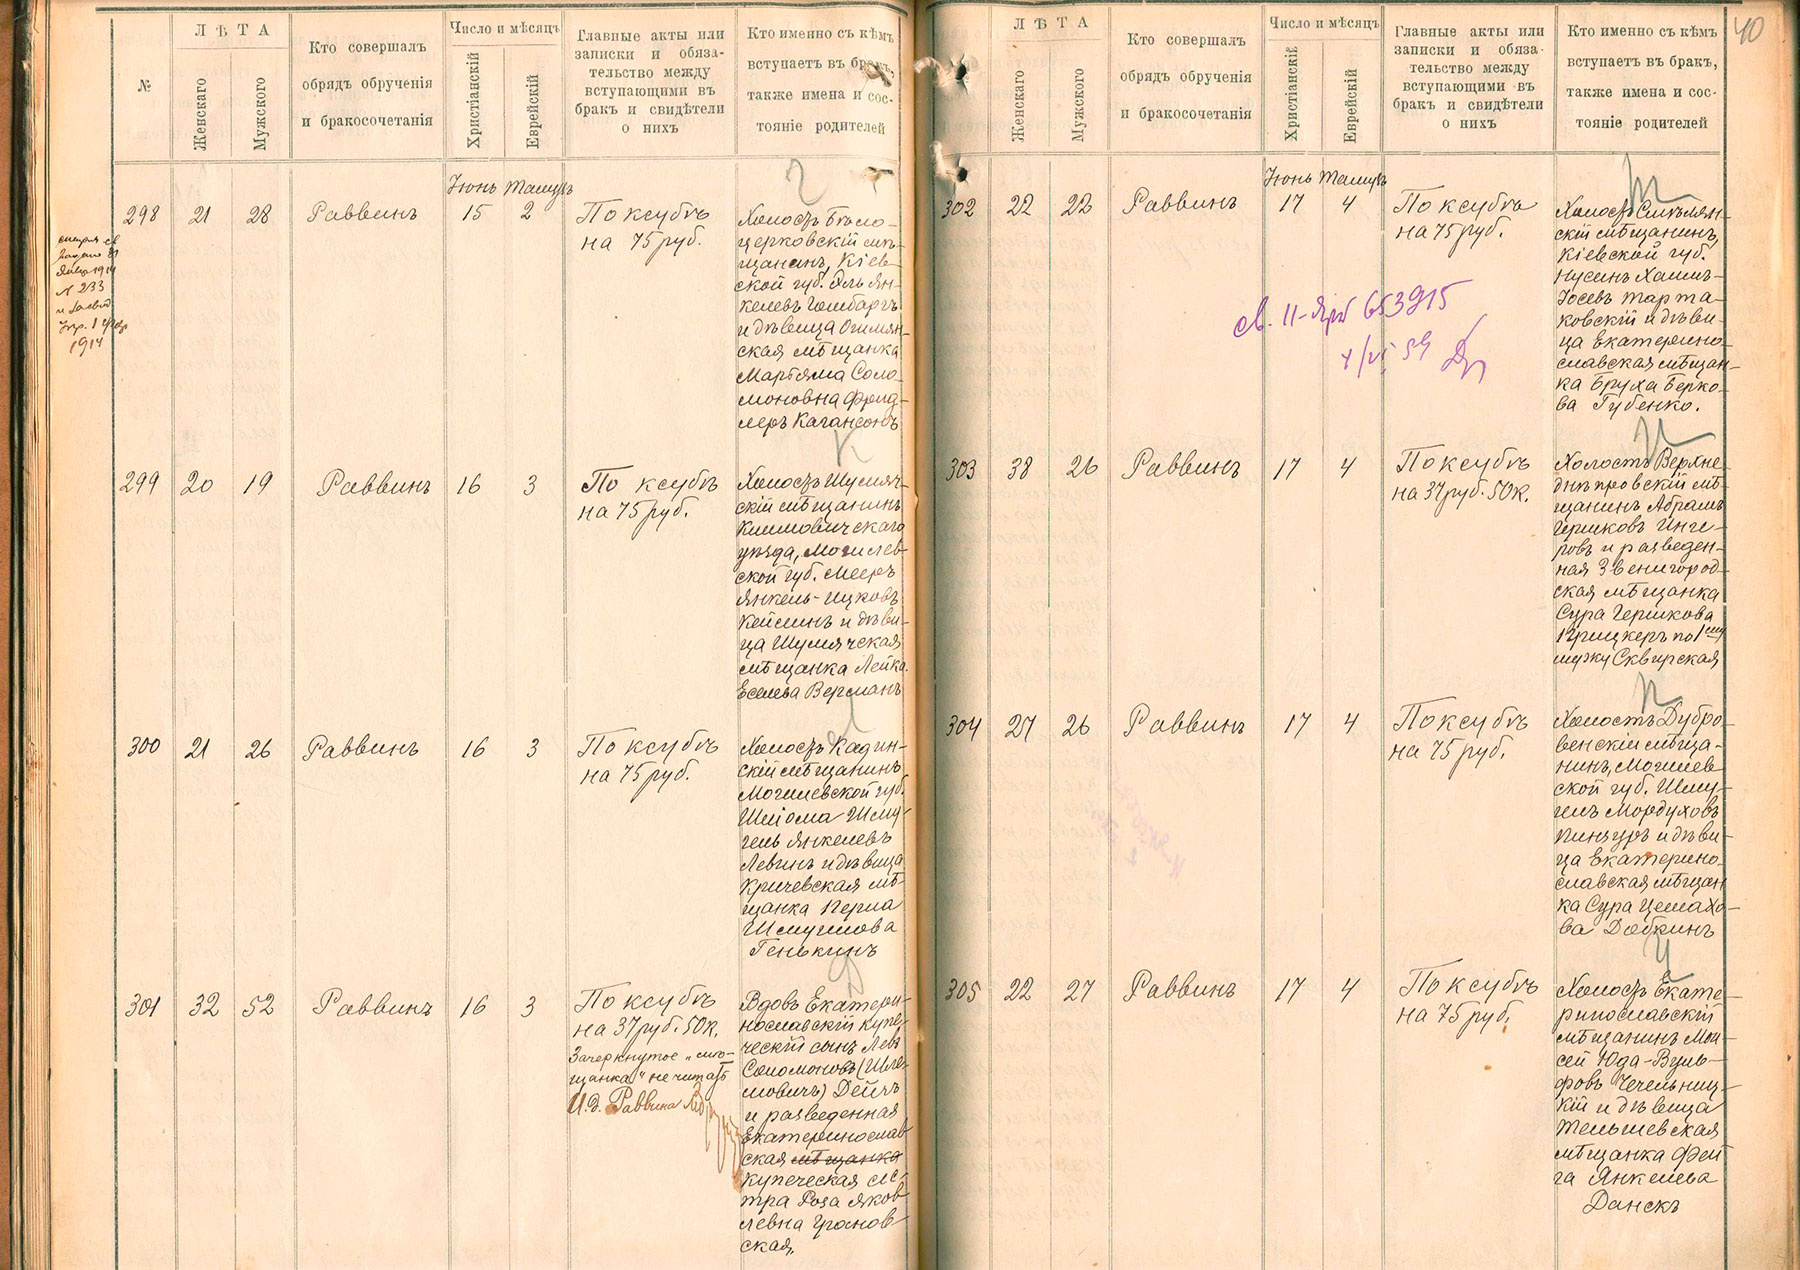 №
ЛѢТА
Женскаго
Мужского
Кто совершалъ
обрядъ обрученія
и бракосочетанія
Число и мѣсяцъ
Христіанскій
Еврейскій
Главные акты или
записки и обяза-
тельство между
вступающими въ
бракъ и свидѣтели
о нихъ
Кто именно съ кѣмъ
вступаетъ въ бракъ,
также имена и сос-
тояніе родителей
Іюнь Тамузъ
298 21 28 Раввинъ 15 2
По ксубѣ
на 75 руб.
Холостъ Бѣло-
церковскій мѣ-
щанинъ, Кіев-
ской губ. Эль Ян-
келевъ Гомбаргъ
и дѣвица Ошмян-
ская мѣщанка
Марьяма Соло-
моновна Фрид-
леръ Кагансонъ
1914
№ 233
1914
К
299 20 19 Раввинъ 16 3
По ксубѣ
на 75 руб.
Холостъ Шумяч-
скій мѣщанинъ
Климовичскаго
уѣзда, Могилев-
ской губ. Мееръ
Янкель-Ицковъ
Кейлинъ и дѣви-
ца Шумячская
мѣщанка Лейка
Еселева Верманъ
Л
300 21 26 Раввинъ 16 3
По ксубѣ
на 75 руб.
Холостъ Кадин-
скій мѣщанинъ
Могилевской губ.
Шлйома Шму-
гель Янкелевъ
Левинъ и дѣвица
Кричевская мѣ-
щанка Перла
Шмуилова
Генькинъ
Д
301 32 52 Раввинъ 16 3
По ксубѣ
на 37 руб. 50 к.
Зачеркнутое „мѣ-
щанка“ не читать
И.д. Раввина
Вдовъ Екатери-
нославскій купе-
ческій сынъ Левъ
Соломоновъ (Шле-
мовичъ) Дейчъ
и разведенная
Екатеринослав-
ская мѣщанка
купеческая се-
стра Роза Яков-
левна Гранов-
ская.
40
ЛѢТА
Женскаго
Мужского
Кто совершалъ
обрядъ обрученія
и бракосочетанія
Число и мѣсяцъ
Христіанскій
Еврейскій
Главные акты или
записки и обяза-
тельство между
вступающими въ
бракъ и свидѣтели
о нихъ
Кто именно съ кѣмъ
вступаетъ въ бракъ,
также имена и сос-
тояніе родителей
Іюнь Тамузъ
302 22 22 Раввинъ 17 4
По ксубѣ
на 75 руб.
Холостъ Смѣлян-
скій мѣщанинъ,
Кіевской губ.
Нусинъ Хаимъ-
Іосевъ Тарта-
ковскій и дѣви-
ца Екатерино-
славская мѣщан-
ка Бруха Берко-
ва Губенко.
св. 11-ЯрБ 653915
303 38 26 Раввинъ 17 4
По ксубѣ
на 37 руб. 50 к.
Холостъ Верхне-
днѣпровскій мѣ-
щанинъ Абрамъ
Гершковъ Инге-
ровъ и разведен-
ная Звенигород-
ская мѣщанка
Сура Гершкова
Прицкеръ по 1му
мужу Сквирская
304 27 26 Раввинъ 17 4
По ксубѣ
на 75 руб.
Холостъ Дубро-
венскій мѣща-
нинъ, Могилев-
ской губ. Шму-
гелъ Мордуховъ
Пинзуръ и дѣви-
ца Екатерино-
славская мѣщан-
ка Сура Цемахо-
ва Добкинъ
Ч
305 22 27 Раввинъ 17 4
По ксубѣ
на 75 руб.
Холостъ Екате-
ринославскій
мѣщанинъ Мои-
сей Юда-Вуль-
фовъ Чечельниц-
кій и дѣвица
Тельшевская
мѣщанка Фей-
га Янкелева
Данскъ